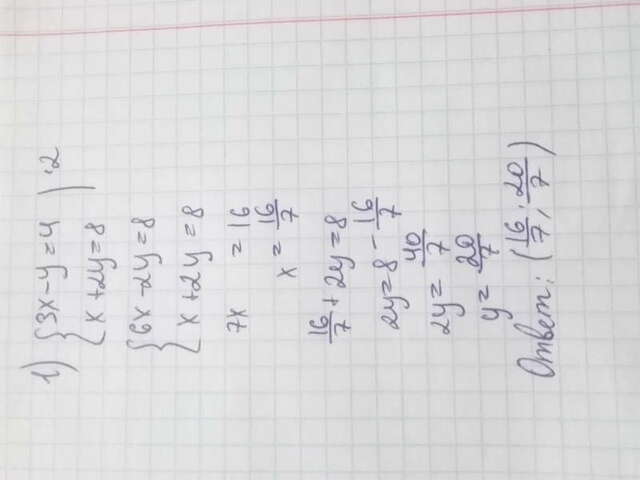 1) { 3x - y = 4 | ·2
x + 2y = 8
{ 6x - 2y = 8
x + 2y = 8
7x = 16
x = 16/7
16/7 + 2y = 8
2y = 8 - 16/7
2y = 40/7
y = 20/7
Ответ: (16/7; 20/7)